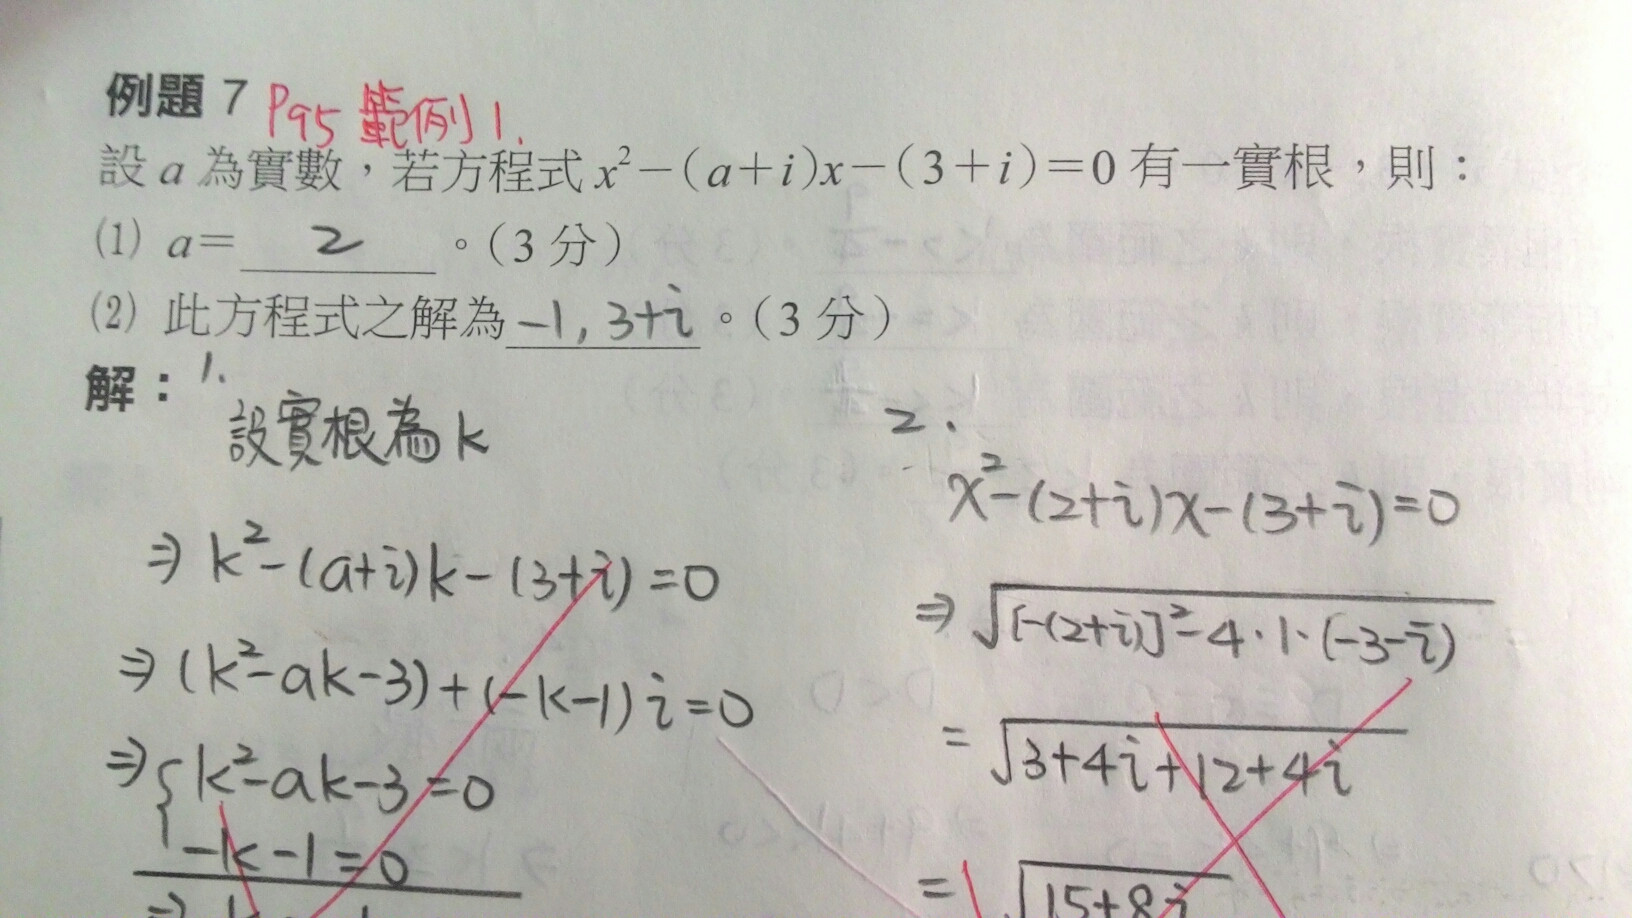 例題 7 P95 範例1.
設 a 為實數，若方程式 x²－(a＋i)x－(3＋i)＝0 有一實根，則：
(1) a＝ 2 。(3 分)
(2) 此方程式之解為 -1, 3+i 。(3 分)
解：1.
設實根為k
⇒ k²-(a+i)k-(3+i)=0
⇒ (k²-ak-3)+(-k-1)i=0
⇒ { k²-ak-3=0
-k-1=0
2.
x²-(2+i)x-(3+i)=0
⇒ √[-(2+i)]²-4·1·(-3-i)
= √3+4i+12+4i
= √15+8i